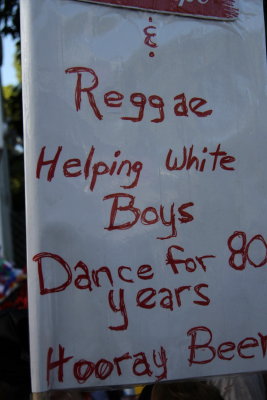 &
Reggae
Helping White
Boys
Dance for 80
years
Hooray Beer